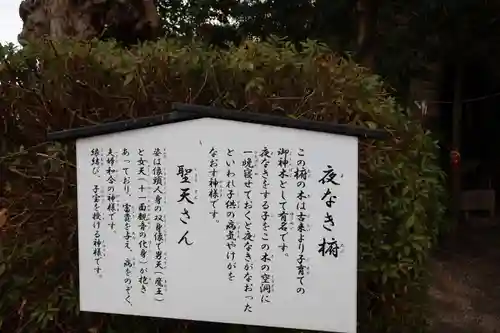 夜なき椨
この椨の木は古来より子育ての
御神木として有名です。
夜なきをする子をこの木の空洞に
一晩寝せておくと夜なきがなおった
といわれ子供の病気やけがを
なおす神様です。
聖天さん
姿は象頭人身の双身像で男天(魔王)
と女天(十一面観音の化身)が抱き
あっており、富貴を与え、病をのぞく、
夫婦和合の神様です。
縁結び、子宝を授ける神様です。